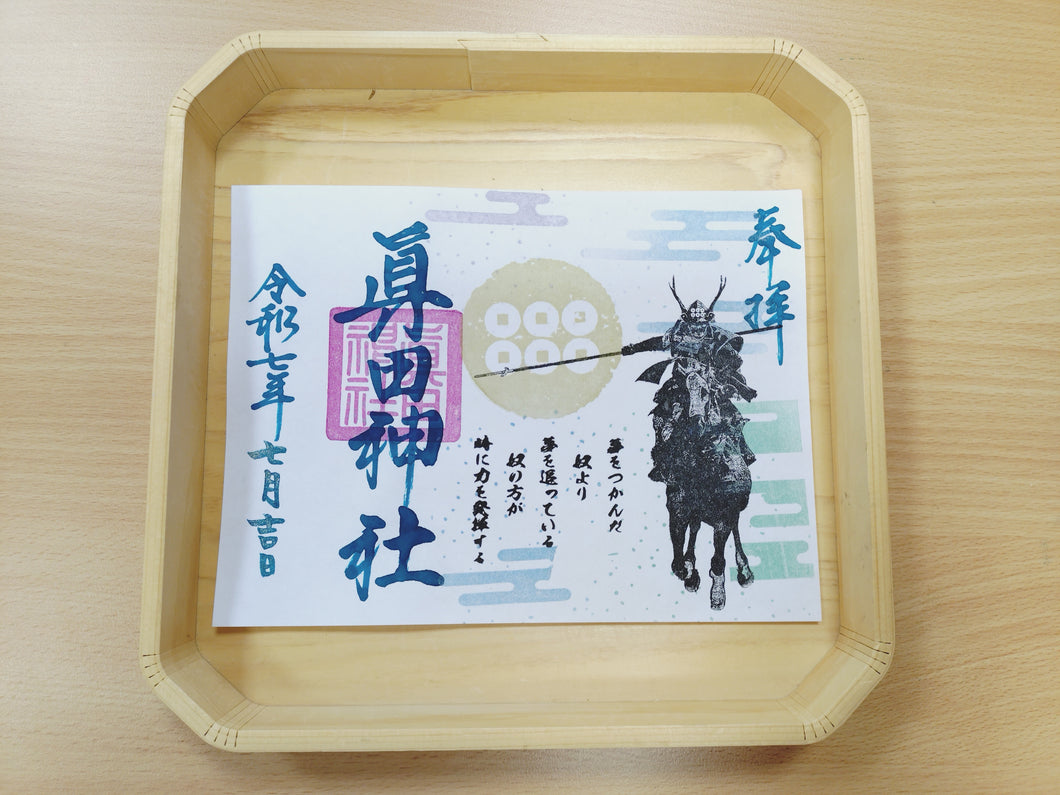 奉拝
夢をつかんだ
奴より
夢を追っている
奴の方が
時に力を発揮する
眞田神社
眞田
神社
令和七年七月吉日